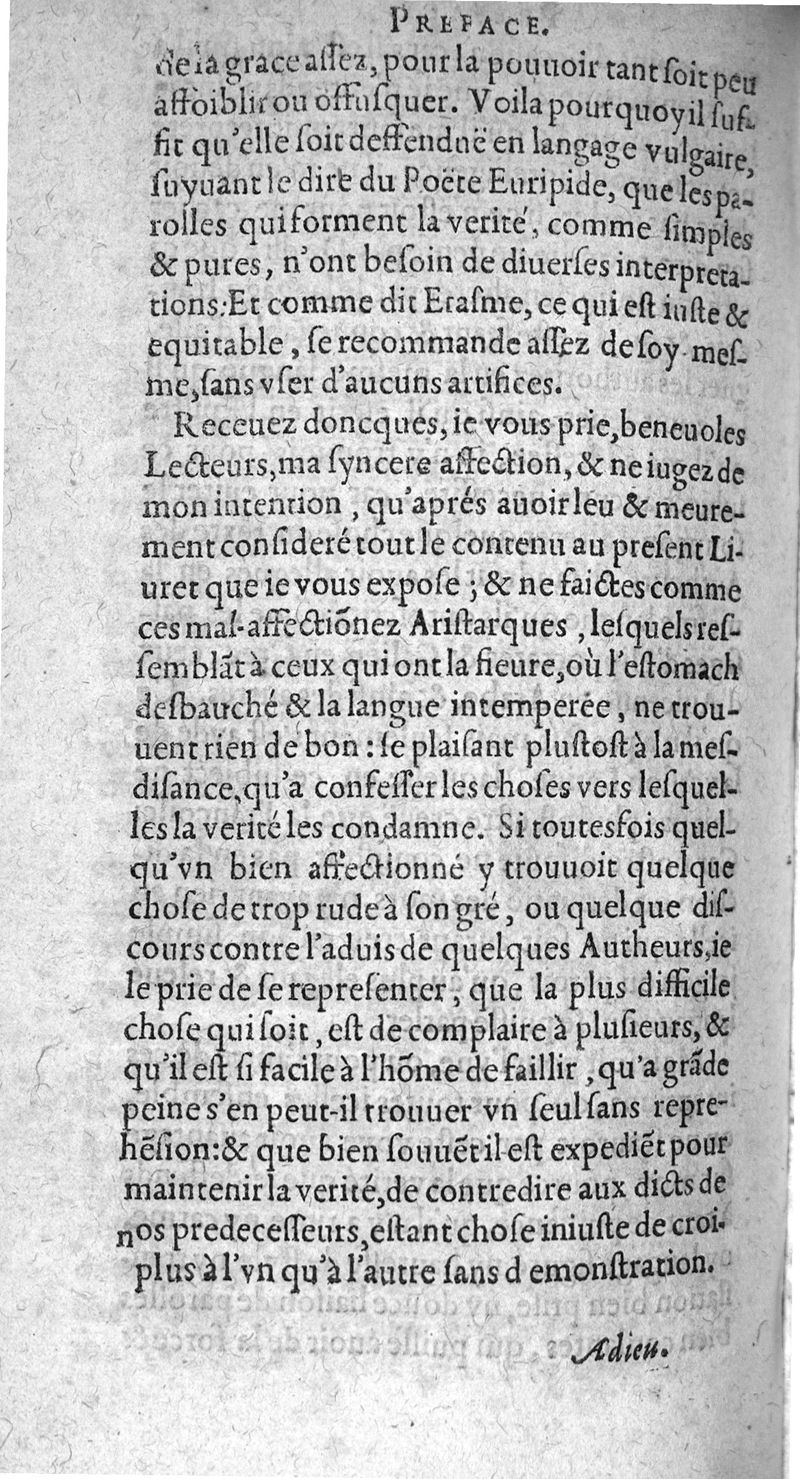 PREFACE.
de la grace aſſez, pour la pouuoir tant ſoit peu
affoiblir ou offuſquer. Voila pourquoy il ſuf-
fit qu'elle ſoit deffenduë en langage vulgaire,
ſuyuant le dire du Poëte Euripide, que les pa-
rolles qui forment la verité, comme ſimples
& pures, n'ont beſoin de diuerſes interpreta-
tions: Et comme dit Eraſme, ce qui eſt iuſte &
equitable, ſe recommande aſſez de ſoy-meſ-
me, ſans vſer d'aucuns artifices.
Receuez doncques, ie vous prie, beneuoles
Lecteurs, ma ſyncere affection, & ne iugez de
mon intention, qu'aprés auoir leu & meure-
ment conſideré tout le contenu au preſent Li-
uret que ie vous expoſe; & ne faictes comme
ces mal-affectiõnez Ariſtarques, leſquels reſ-
ſemblãt à ceux qui ont la fieure, où l'eſtomach
deſbauché & la langue intemperée, ne trou-
uent rien de bon: ſe plaiſant pluſtoſt à la meſ-
diſance, qu'a confeſſer les choſes vers leſquel-
les la verité les condamne. Si toutesfois quel-
qu'vn bien affectionné y trouuoit quelque
choſe de trop rude à ſon gré, ou quelque diſ-
cours contre l'aduis de quelques Autheurs, ie
le prie de ſe repreſenter, que la plus difficile
choſe qui ſoit, eſt de complaire à pluſieurs, &
qu'il eſt ſi facile à l'hõme de faillir, qu'a grãde
peine s'en peut-il trouuer vn ſeul ſans repre-
hẽſion: & que bien ſouuẽt il eſt expediẽt pour
maintenir la verité, de contredire aux dicts de
nos predeceſſeurs, eſtant choſe iniuſte de croi-
plus à l'vn qu'à l'autre ſans d emonſtration.
Adieu.